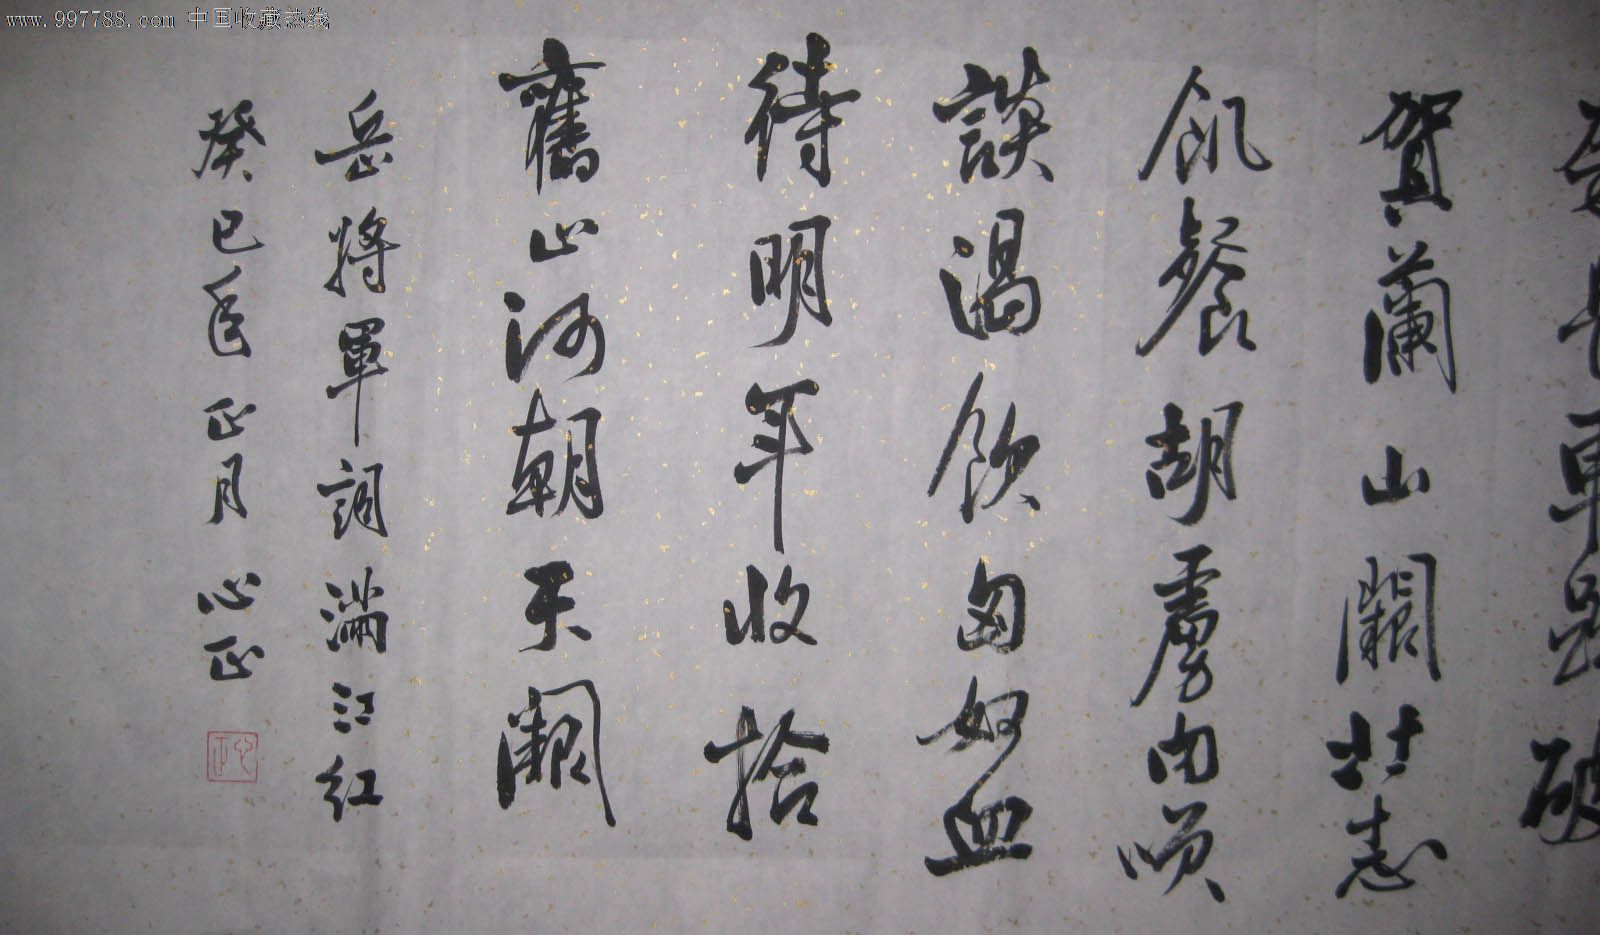 www.997788.com 中国收藏热线
長車踏破
賀蘭山闕壯志
飢餐胡虜肉咲
談渴飲匈奴血
待明年收拾
舊山河朝天闕
岳將軍詞滿江紅
癸巳年正月 心正